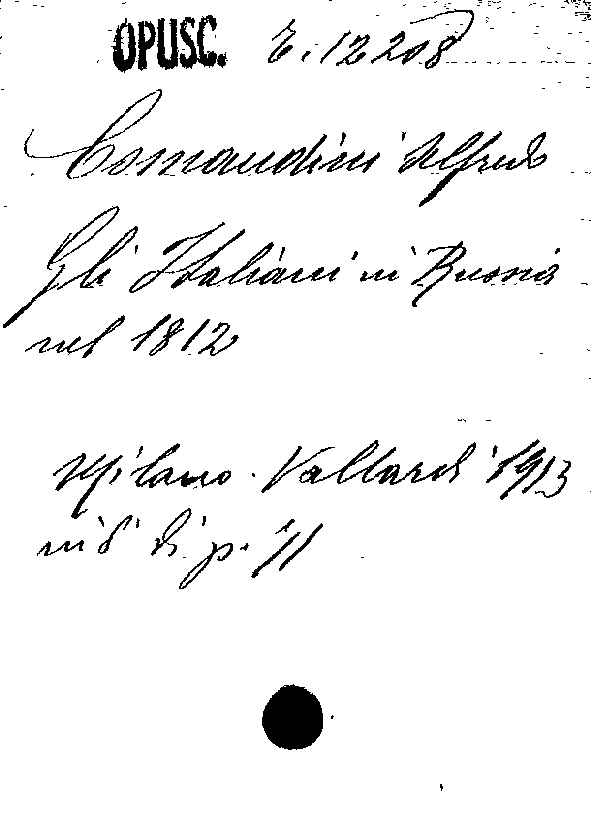 OPUSC. E. 12208
Comandini Alfredo
Gli Italiani in Russia
nel 1812
Milano. Vallardi 1913
in 8° di p. 11